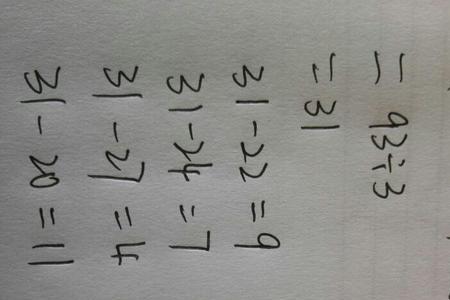 = 93÷3
= 31
31-22=9
31-24=7
31-27=4
31-20=11